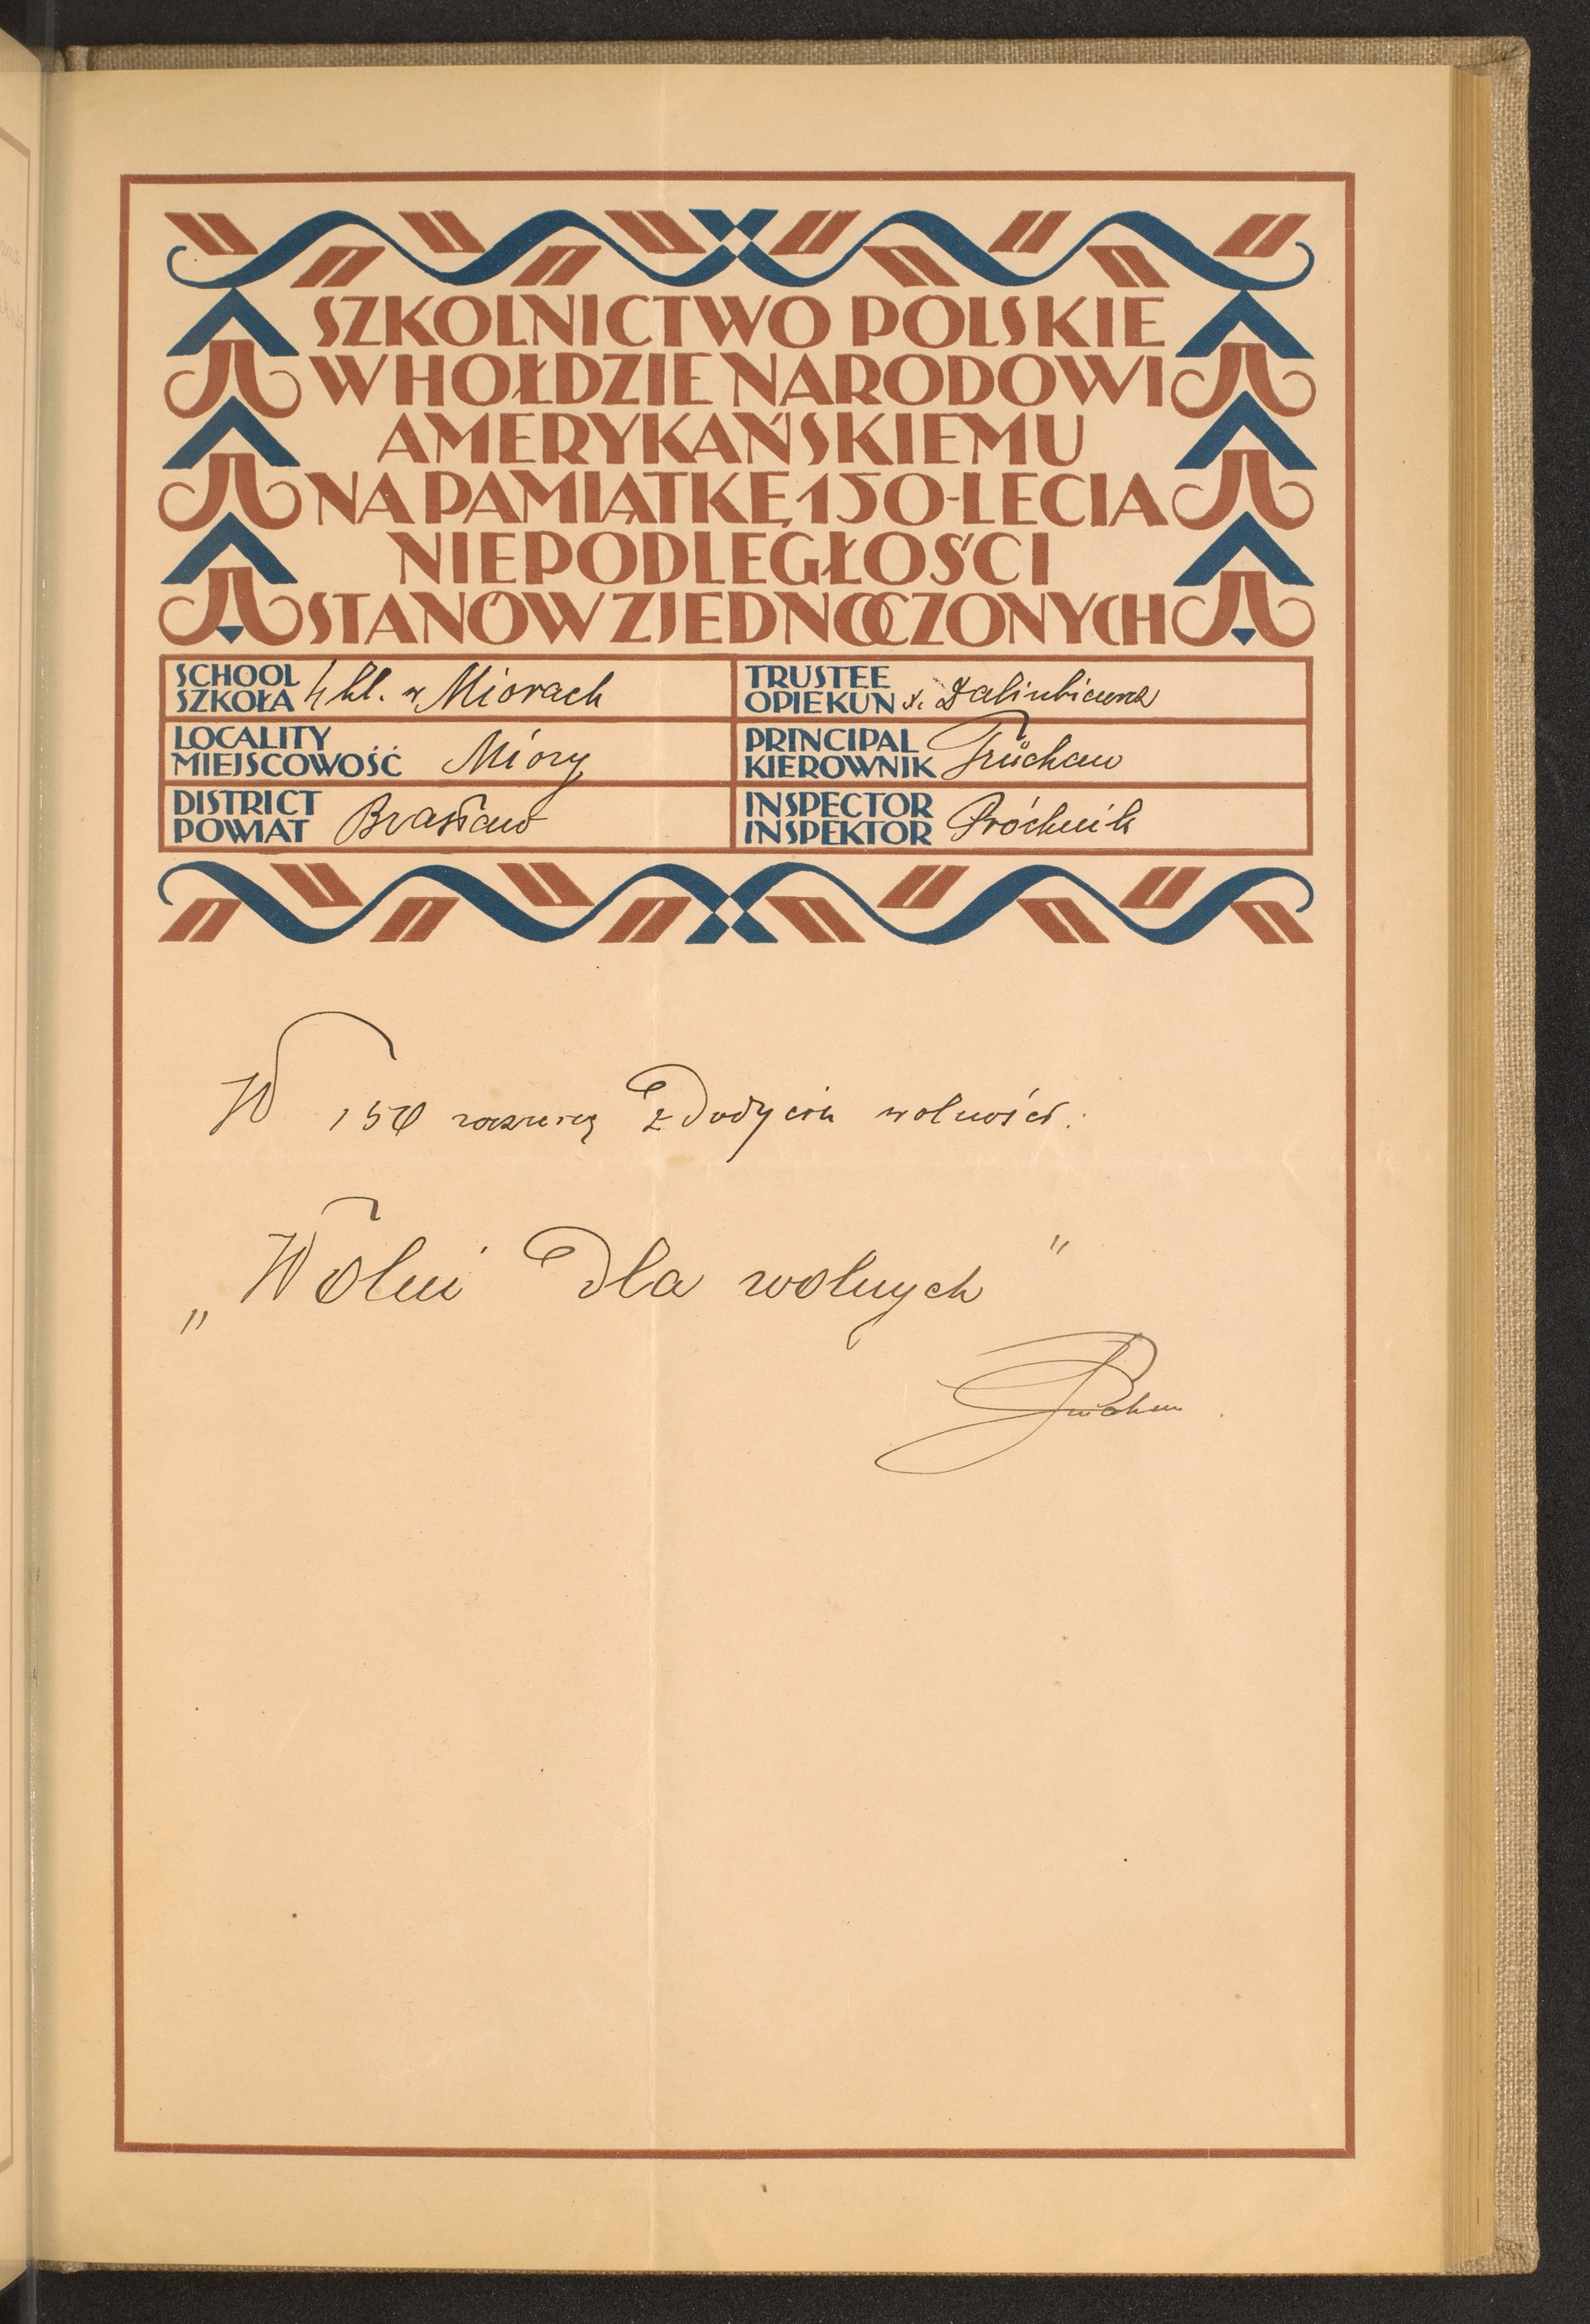 SZKOLNICTWO POLSKIE
W HOŁDZIE NARODOWI
AMERYKAŃSKIEMU
NA PAMIĄTKĘ 150-LECIA
NIEPODLEGŁOŚCI
STANÓW ZJEDNOCZONYCH
SCHOOL
SZKOŁA 4 kl. w Miorach
LOCALITY
MIEJSCOWOŚĆ Miory
DISTRICT
POWIAT Brasław
TRUSTEE
OPIEKUN
PRINCIPAL
KIEROWNIK Truchan
INSPECTOR
INSPEKTOR Próchnik
W 150 rocznicę zdobycia wolności:
„Wolni dla wolnych"